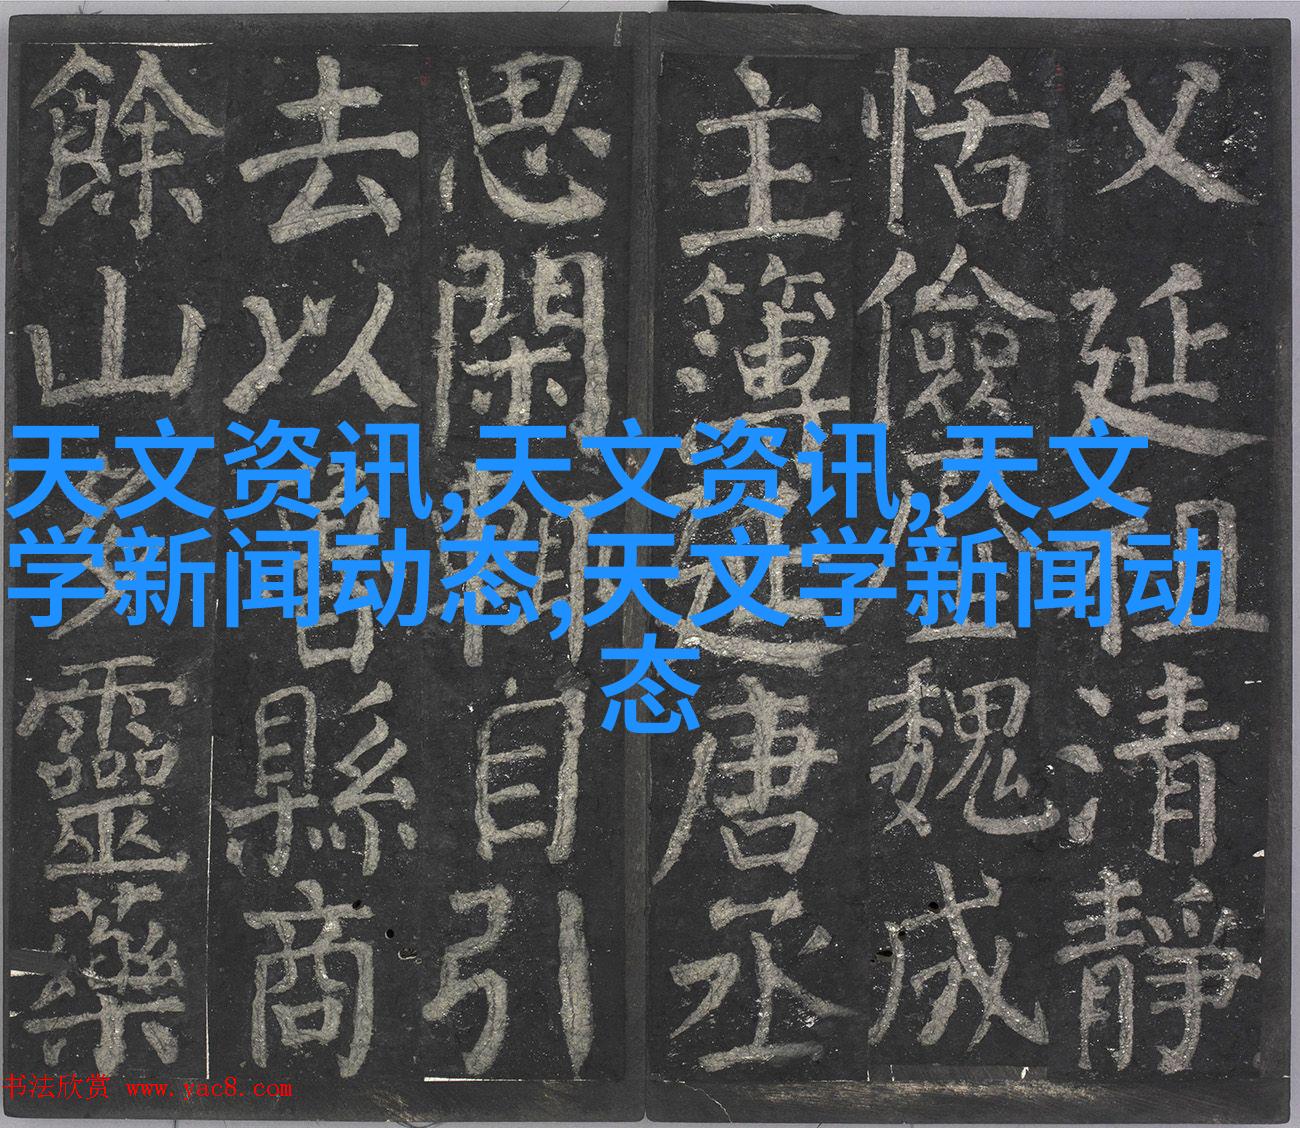 天文资讯,天文资讯,天文
学新闻动态,天文学新闻动
态
父延祖清靜
恬儉魏成
主簿延唐丞
思閑輒自引
去以魯縣商
餘山多靈藥
书法欣赏 www.yac8.com